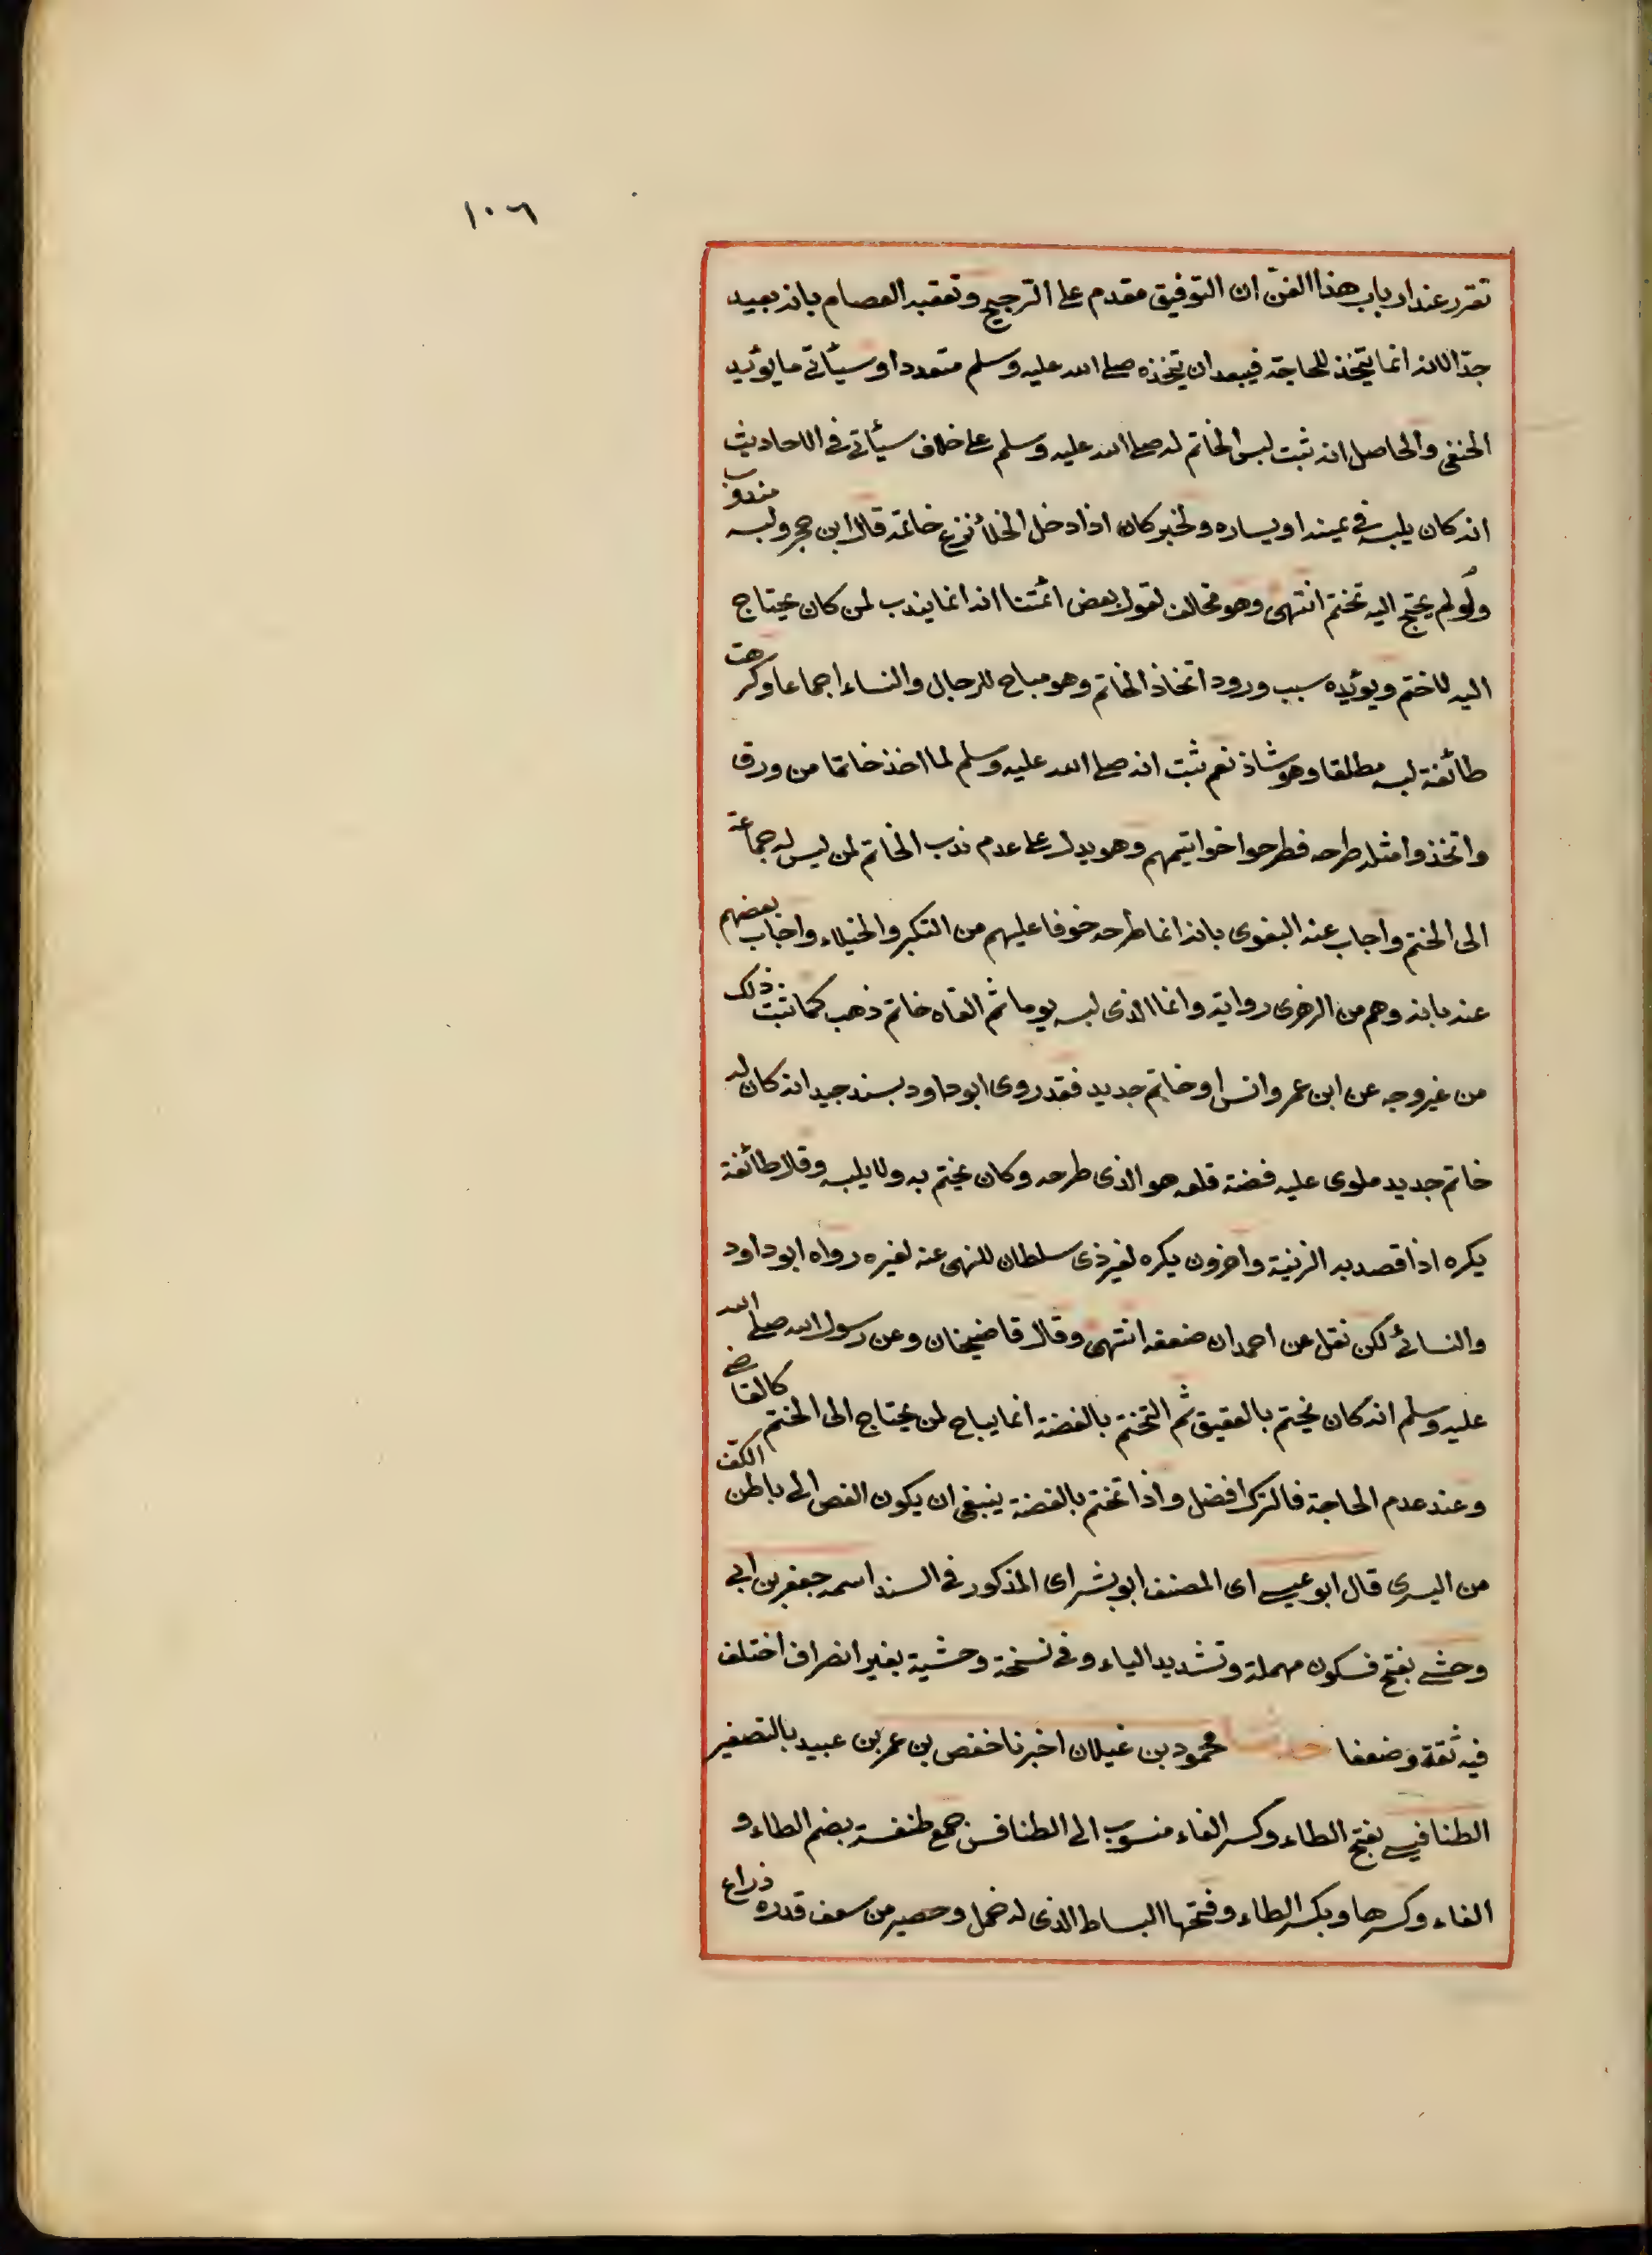 ١٠٦
تقرر عند ارباب هذا الفنّ ان التوفيق مقدم على الترجيح وتعقبه العصام بانه بعيد
جدّا لانه انما يتخذ للحاجة فيبعد ان يتخذه صلى الله عليه وسلم متعددا وسيأتى ما يؤيد
الحنفى والحاصل انه ثبت لبس الخاتم له صلى الله عليه وسلم على خلاف سيأتى فى الاحاديث
انه كان يلبسه فى يمينه او يساره ولخبر كان اذا دخل الخلأ نزع خاتمه قال ابن حجر ولبسه مندوب
ولو لم يحتج اليه لختم انتهى وهو مخالف لقول بعض ائمتنا انه انما يندب لمن كان يحتاج
اليه للختم ويؤيده سبب ورود اتخاذ الخاتم وهو مباح للرجال والنساء اجماعا وكرهت
طائفة لبسه مطلقا وهو شاذ نعم ثبت انه صلى الله عليه وسلم لما اخذ خاتما من ورق
واتخذوا مثله طرحه فطرحوا خواتيمهم وهو يدل على عدم ندب الخاتم لمن ليس له جماعة
الى الختم واجاب عنه البغوى بانه انما طرحه خوفا عليهم من التكبر والخيلاء واجاب بعضهم
عنه بانه وهم من الزهرى رواية وانما الذى لبسه يوما ثم القاه خاتم ذهب كما ثبت ذلك
من غير وجه عن ابن عمر وانس او خاتم جديد فقد روى ابو داود بسند جيد انه كان له
خاتم جديد ملوى عليه فضة فلعله هو الذى طرحه وكان يختم به ولا يلبسه وقال طائفة
يكره اذا قصد به الزينة واخرون يكره لغير ذى سلطان للنهى عنه لغيره رواه ابو داود
والنسائى لكن نقل عن احمد ان ضعفه انتهى وقال قاضيخان وعن رسول الله صلى الله
عليه وسلم انه كان يختم بالعقيق ثم التختم بالفضة انما يباح لمن يحتاج الى الختم كالقاضى
وعند عدم الحاجة فالترك افضل واذا تختم بالفضة ينبغى ان يكون الفص الى باطن الكفّ
من اليسرى قال ابو عيسى اى المصنف ابو بشر اى المذكور فى السند اسمه جعفر بن ابى
وحشى بفتح فسكون مهملة وتشديد الياء وفى نسخة وحشية بغير انصراف اختلف
فيه ثقة وضعفا حدثنا محمود بن غيلان اخبرنا حفص بن عمر بن عبيد بالتصغير
الطنافسى بفتح الطاء وكسر الفاء منسوب الى الطنافس جمع طنفسة بضم الطاء و
الفاء وكسرها وبكسر الطاء وفتحها البساط الذى له خمل وحصير من سعف قدره ذراع